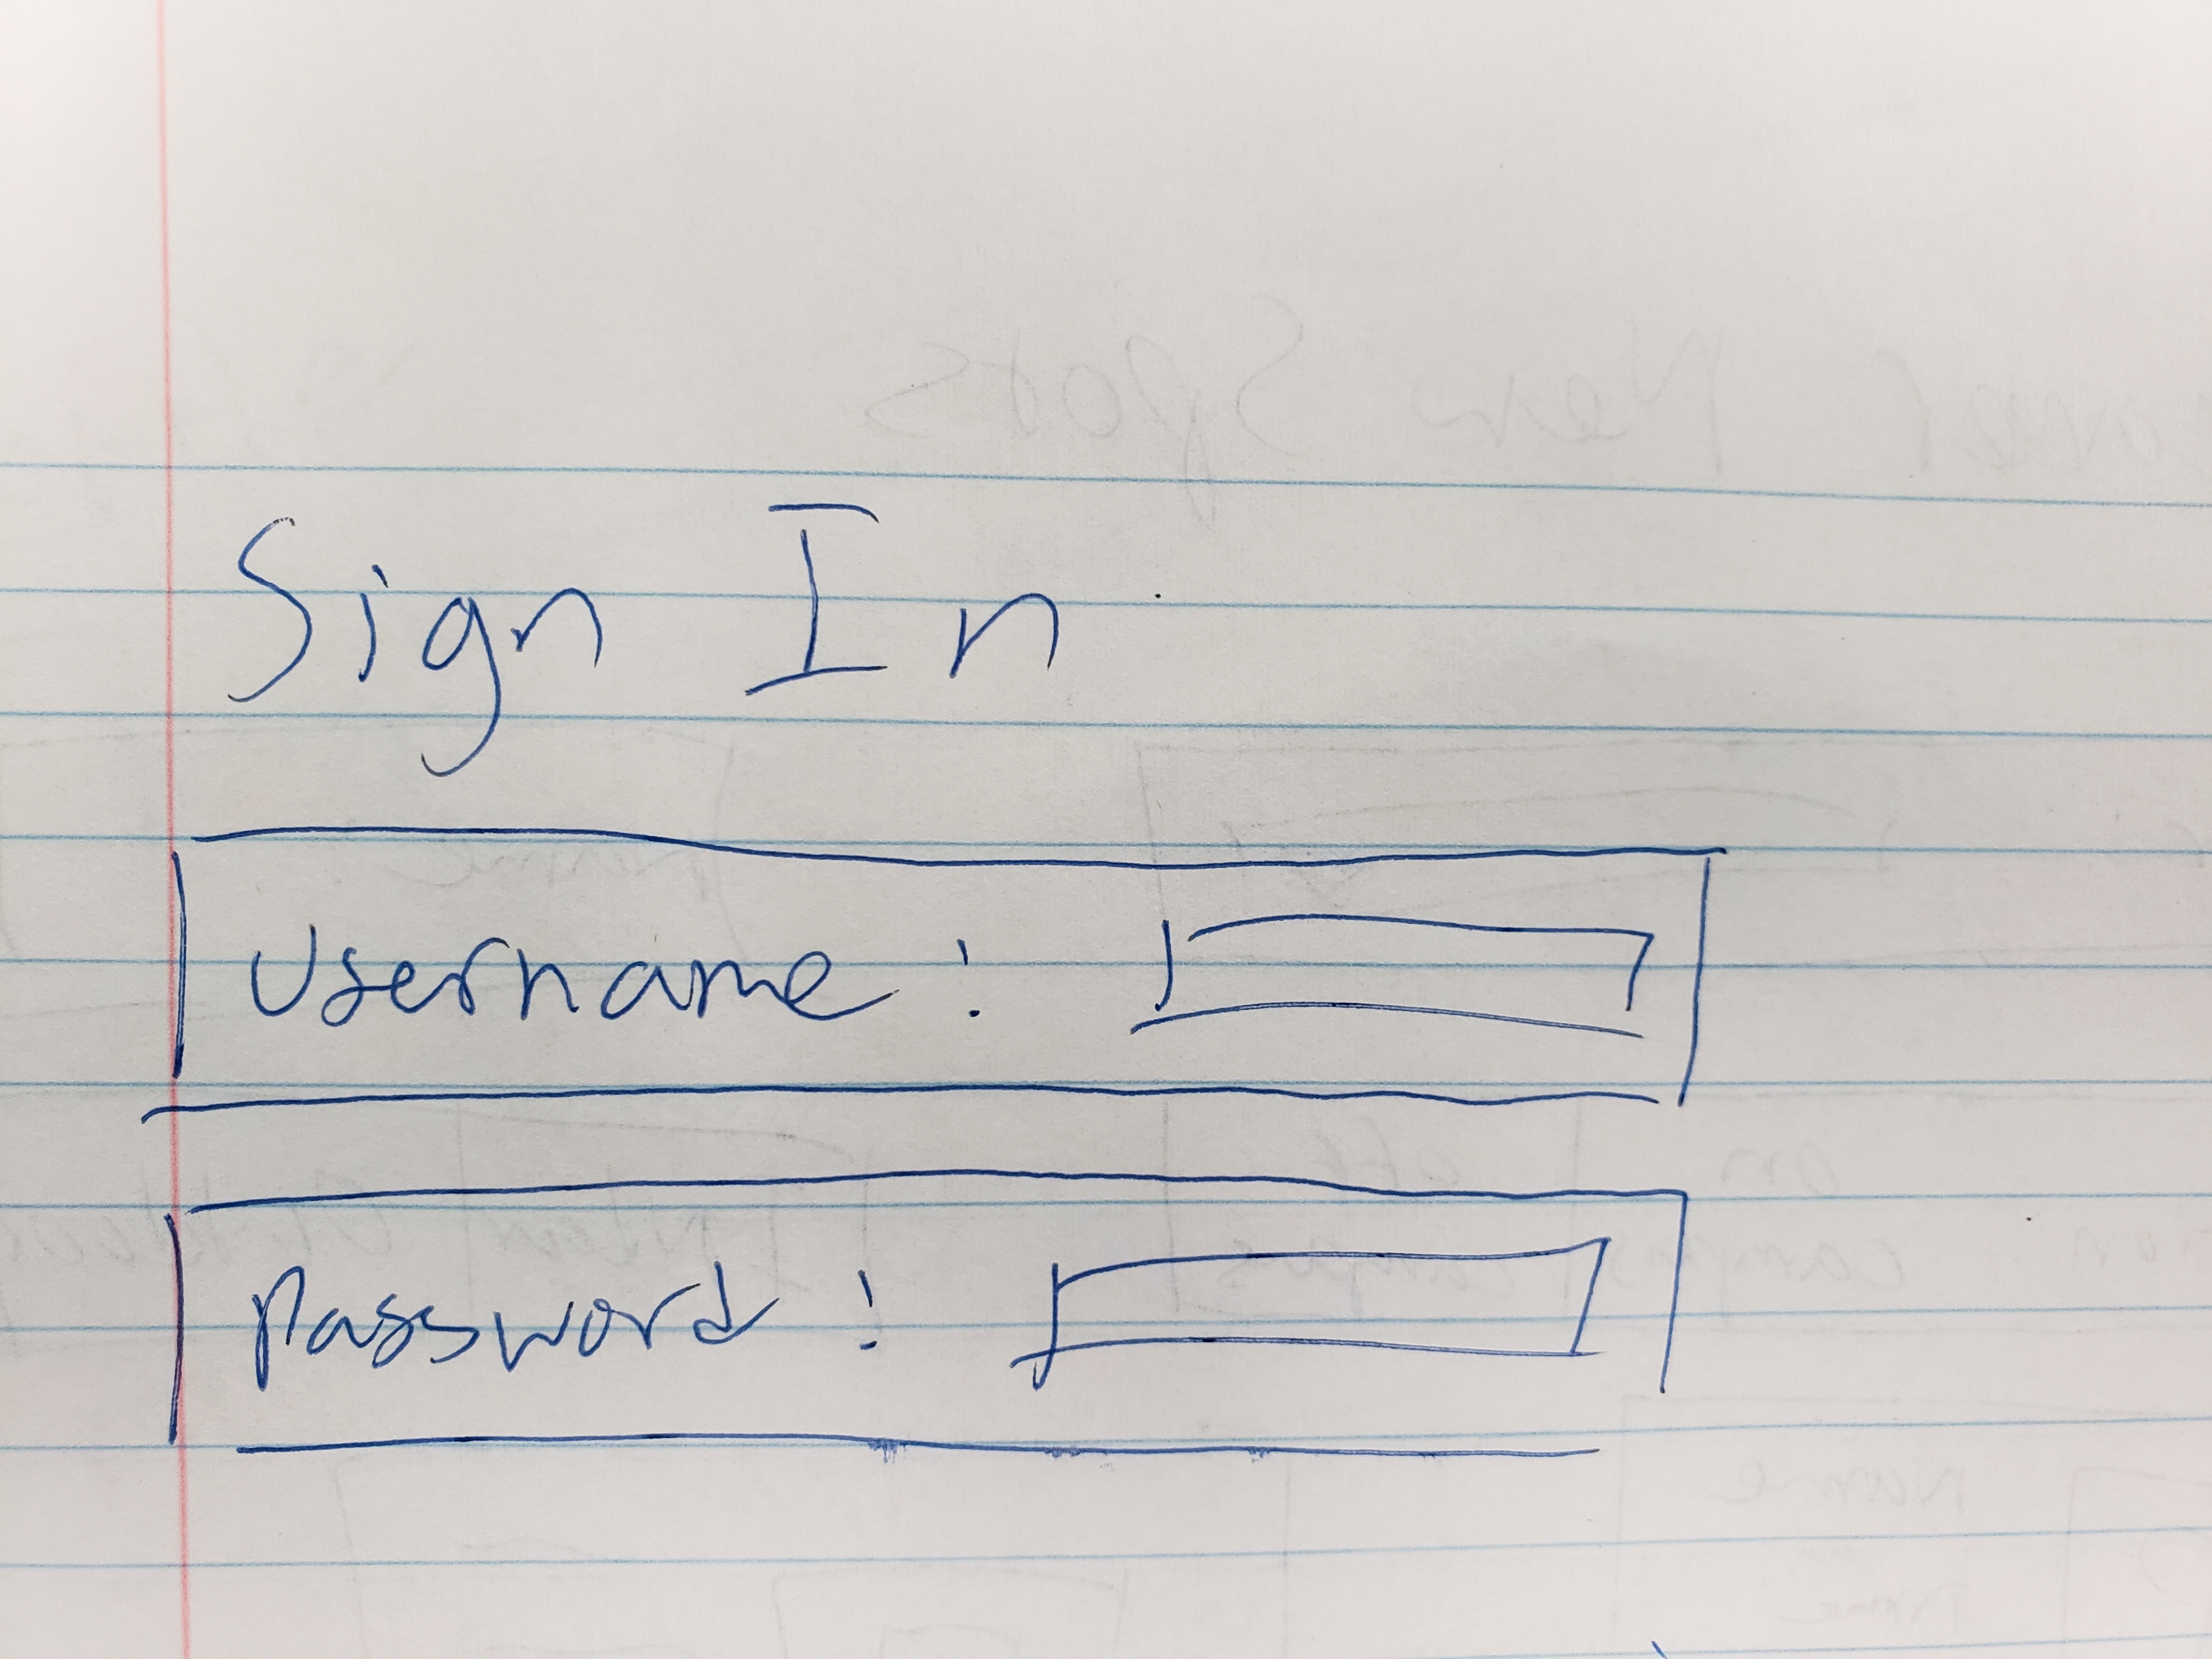 Sign In
Username:
Password: